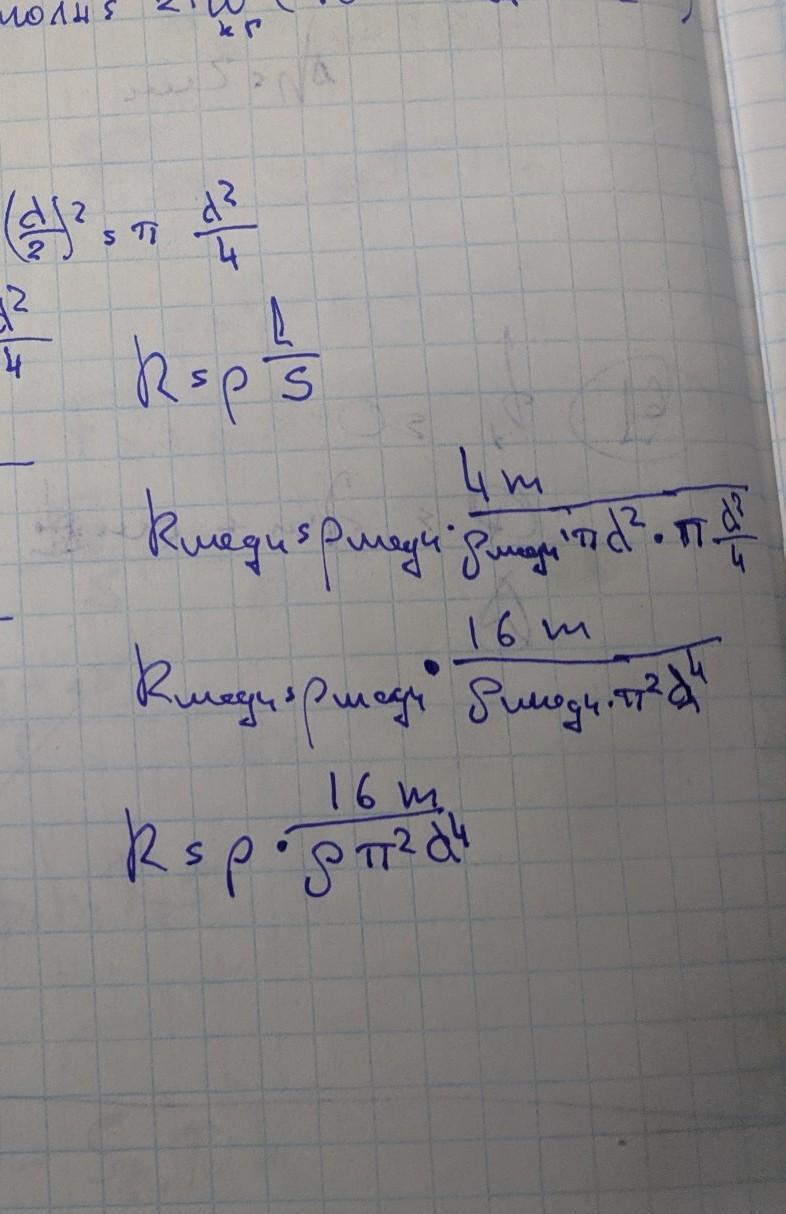 кг
(d/2)² = π d²/4
d²/4
R = ρ L/S
Rмеди = ρмеди · 4m / ρмеди · πd² · π d²/4
Rмеди = ρмеди · 16m / ρмеди · π²d⁴
R = ρ · 16m / ρπ²d⁴